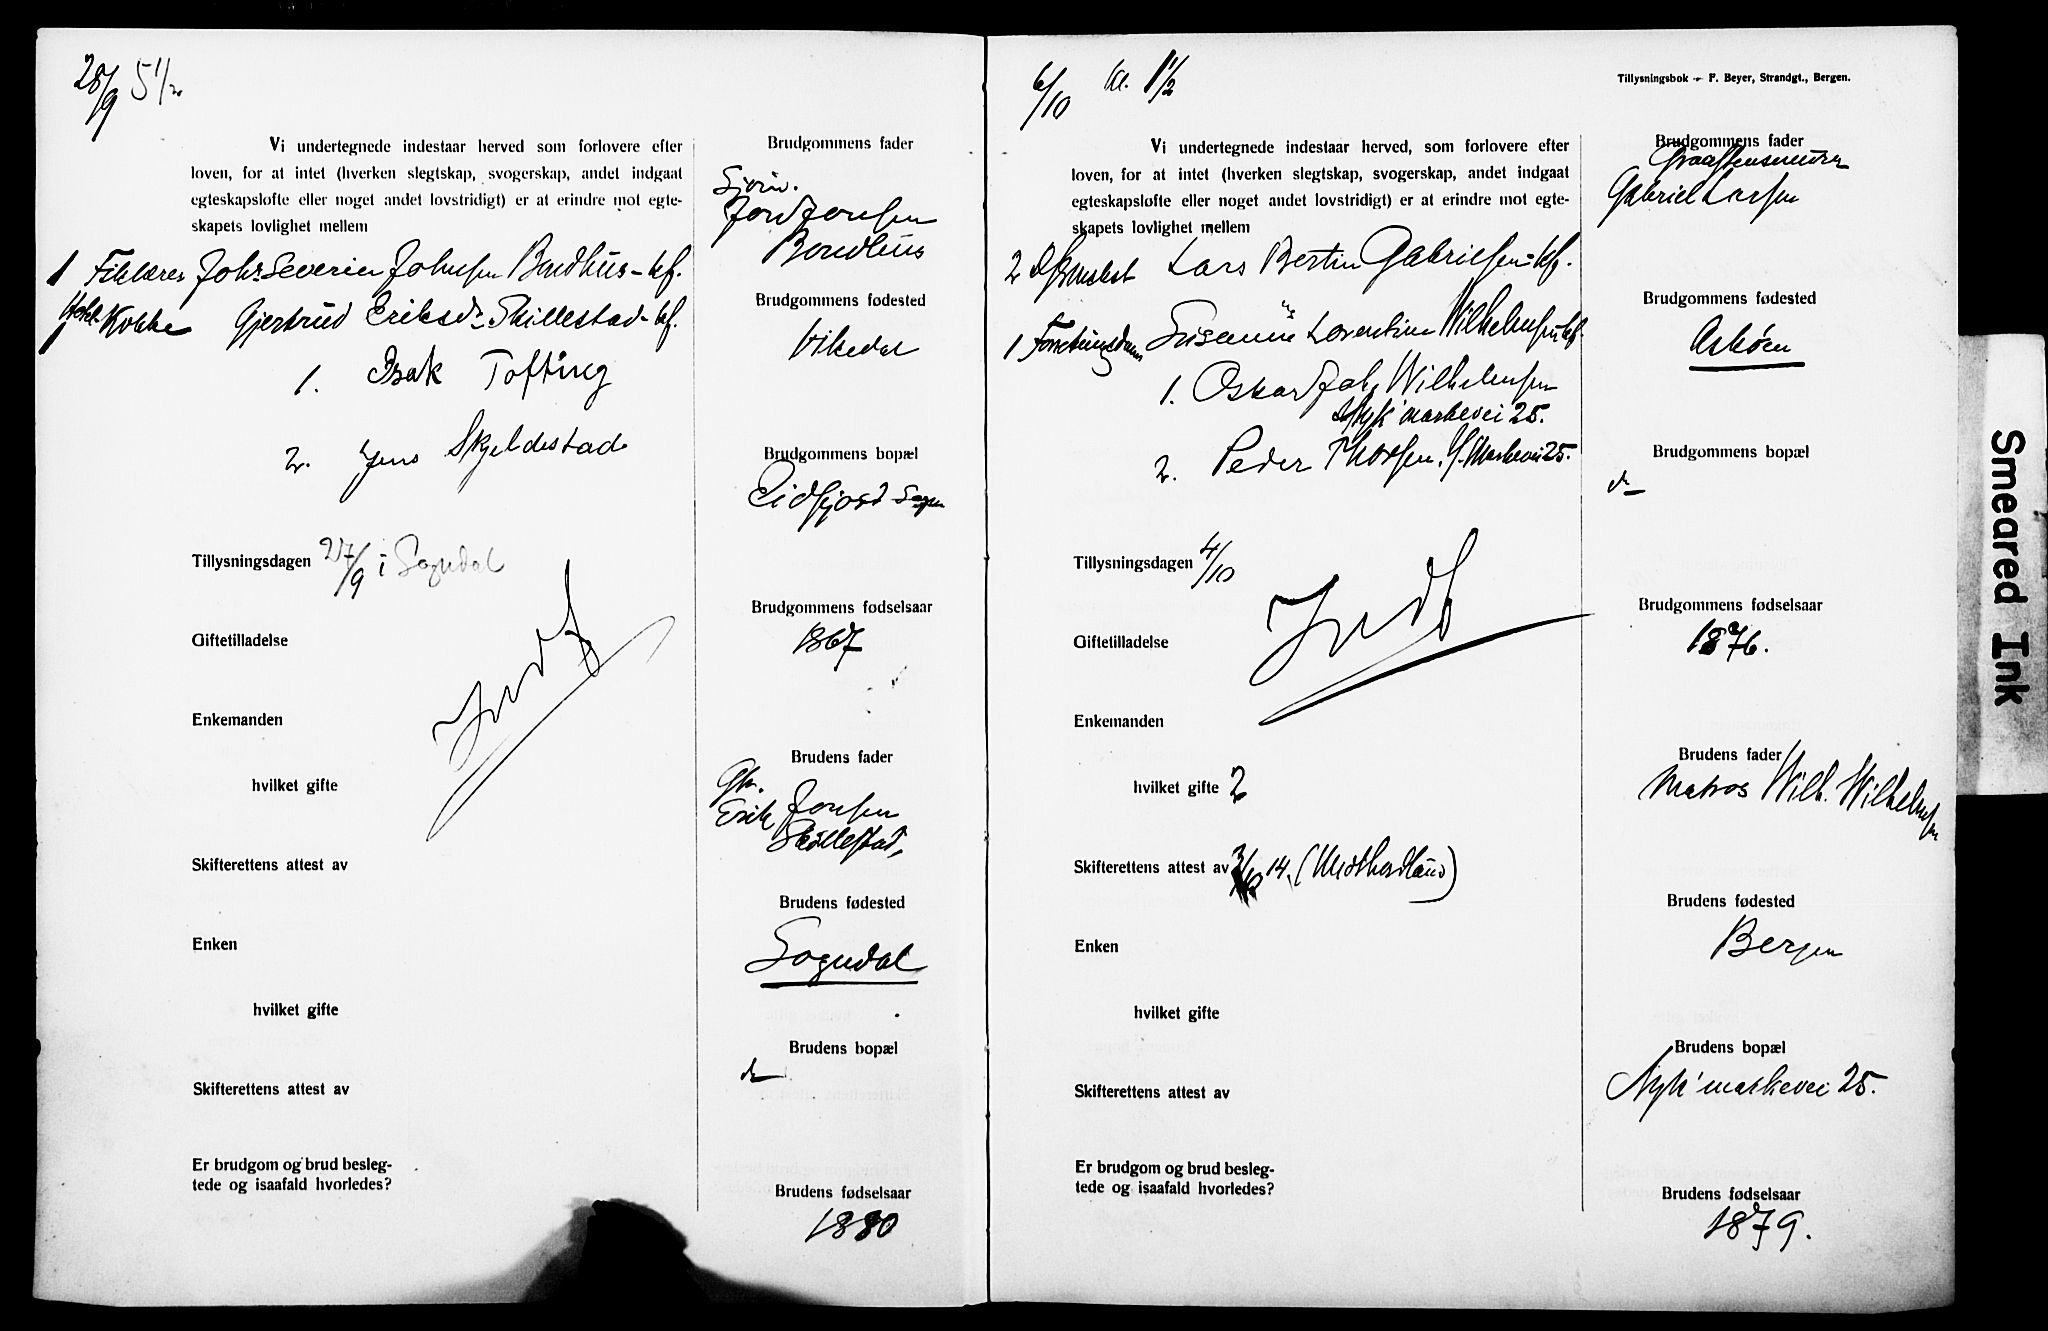 28/9 5 1/2
Vi undertegnede indestaar herved som forlovere efter
loven, for at intet (hverken slegtskap, svogerskap, andet indgaat
egteskapsløfte eller noget andet lovstridigt) er at erindre mot egte-
skapets lovlighet mellem
1 Joh. Severin Johnsen Bondhus - kf.
1 Kokke Gjertrud Eriksdr. Skillestad - kf.
1. Isak Tofting
2. Jens Skjeldestad
Tillysningsdagen 27/9 i Sogndal
Giftetilladelse
Enkemanden
hvilket gifte
Skifterettens attest av
Enken
hvilket gifte
Skifterettens attest av
Er brudgom og brud besleg-
tede og isaafald hvorledes?
Indf
Brudgommens fader
Jonsen
Bondhus
Brudgommens fødested
Vikedal
Brudgommens bopæl
Eidfjord Sogn
Brudgommens fødselsaar
1867
Brudens fader
Gbr.
Erik Jonsen
Skillestad,
Brudens fødested
Sogndal
Brudens bopæl
do
Brudens fødselsaar
1880
6/10 kl. 1 1/2
Tillysningsbok — F. Beyer, Strandgt., Bergen.
Vi undertegnede indestaar herved, som forlovere efter
loven, for at intet (hverken slegtskap, svogerskap, andet indgaat
egteskapsløfte eller noget andet lovstridigt) er at erindre mot egte-
skapets lovlighet mellem
2 Lars Bertin Gabrielsen - kf.
1 Susanne Lorentine Wilhelmsen - kf.
1. Oskar Joh. Wilhelmsen
Nyk' markevei 25.
2. Peder Thorsen, Markevei 25.
Tillysningsdagen 4/10
Giftetilladelse
Enkemanden
hvilket gifte 2
Skifterettens attest av 3/10 14. (Midthordland)
Enken
hvilket gifte
Skifterettens attest av
Er brudgom og brud besleg-
tede og isaafald hvorledes?
Indf
Brudgommens fader
Graastensmurer
Gabriel Larsen
Brudgommens fødested
Askøen
Brudgommens bopæl
do
Brudgommens fødselsaar
1876.
Brudens fader
Matros Wilh. Wilhelmsen
Brudens fødested
Bergen
Brudens bopæl
Nyk' markevei 25.
Brudens fødselsaar
1879.
Smeared Ink